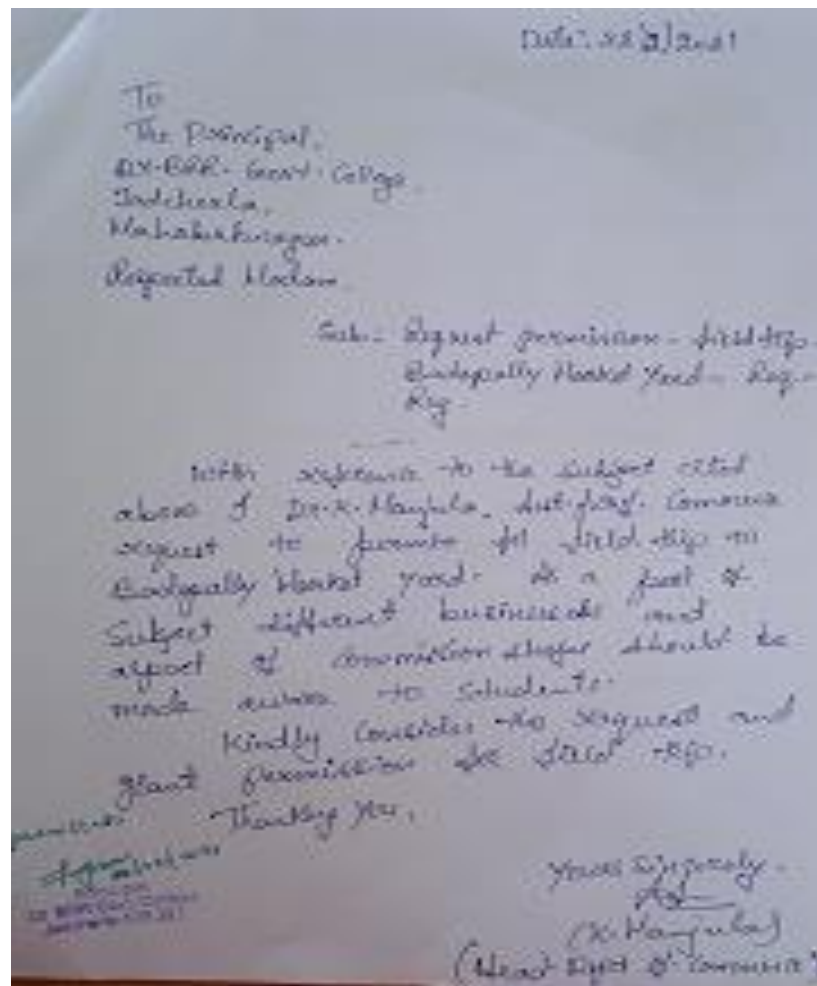 Date: 22/2/2021
To
The Principal,
Dr. BRR. Govt. College
Jadcherla,
Mahabubnagar.
Respected Madam.
Sub:- Request permission - field trip.
Badepally Market Yard - Reg -
Reg -
With reference to the subject cited
above I Dr. K. Manjula, Ast. prof. Commerce
request to permit for field trip to
Badepally Market yard. As a part of
Subject different businesses and
aspect of commission shops should be
made aware to students.
Kindly consider the request and
grant permission for field trip.
Thanking You,
Yours Sincerely -
(K. Manjula)
(Head Dept of Commerce)